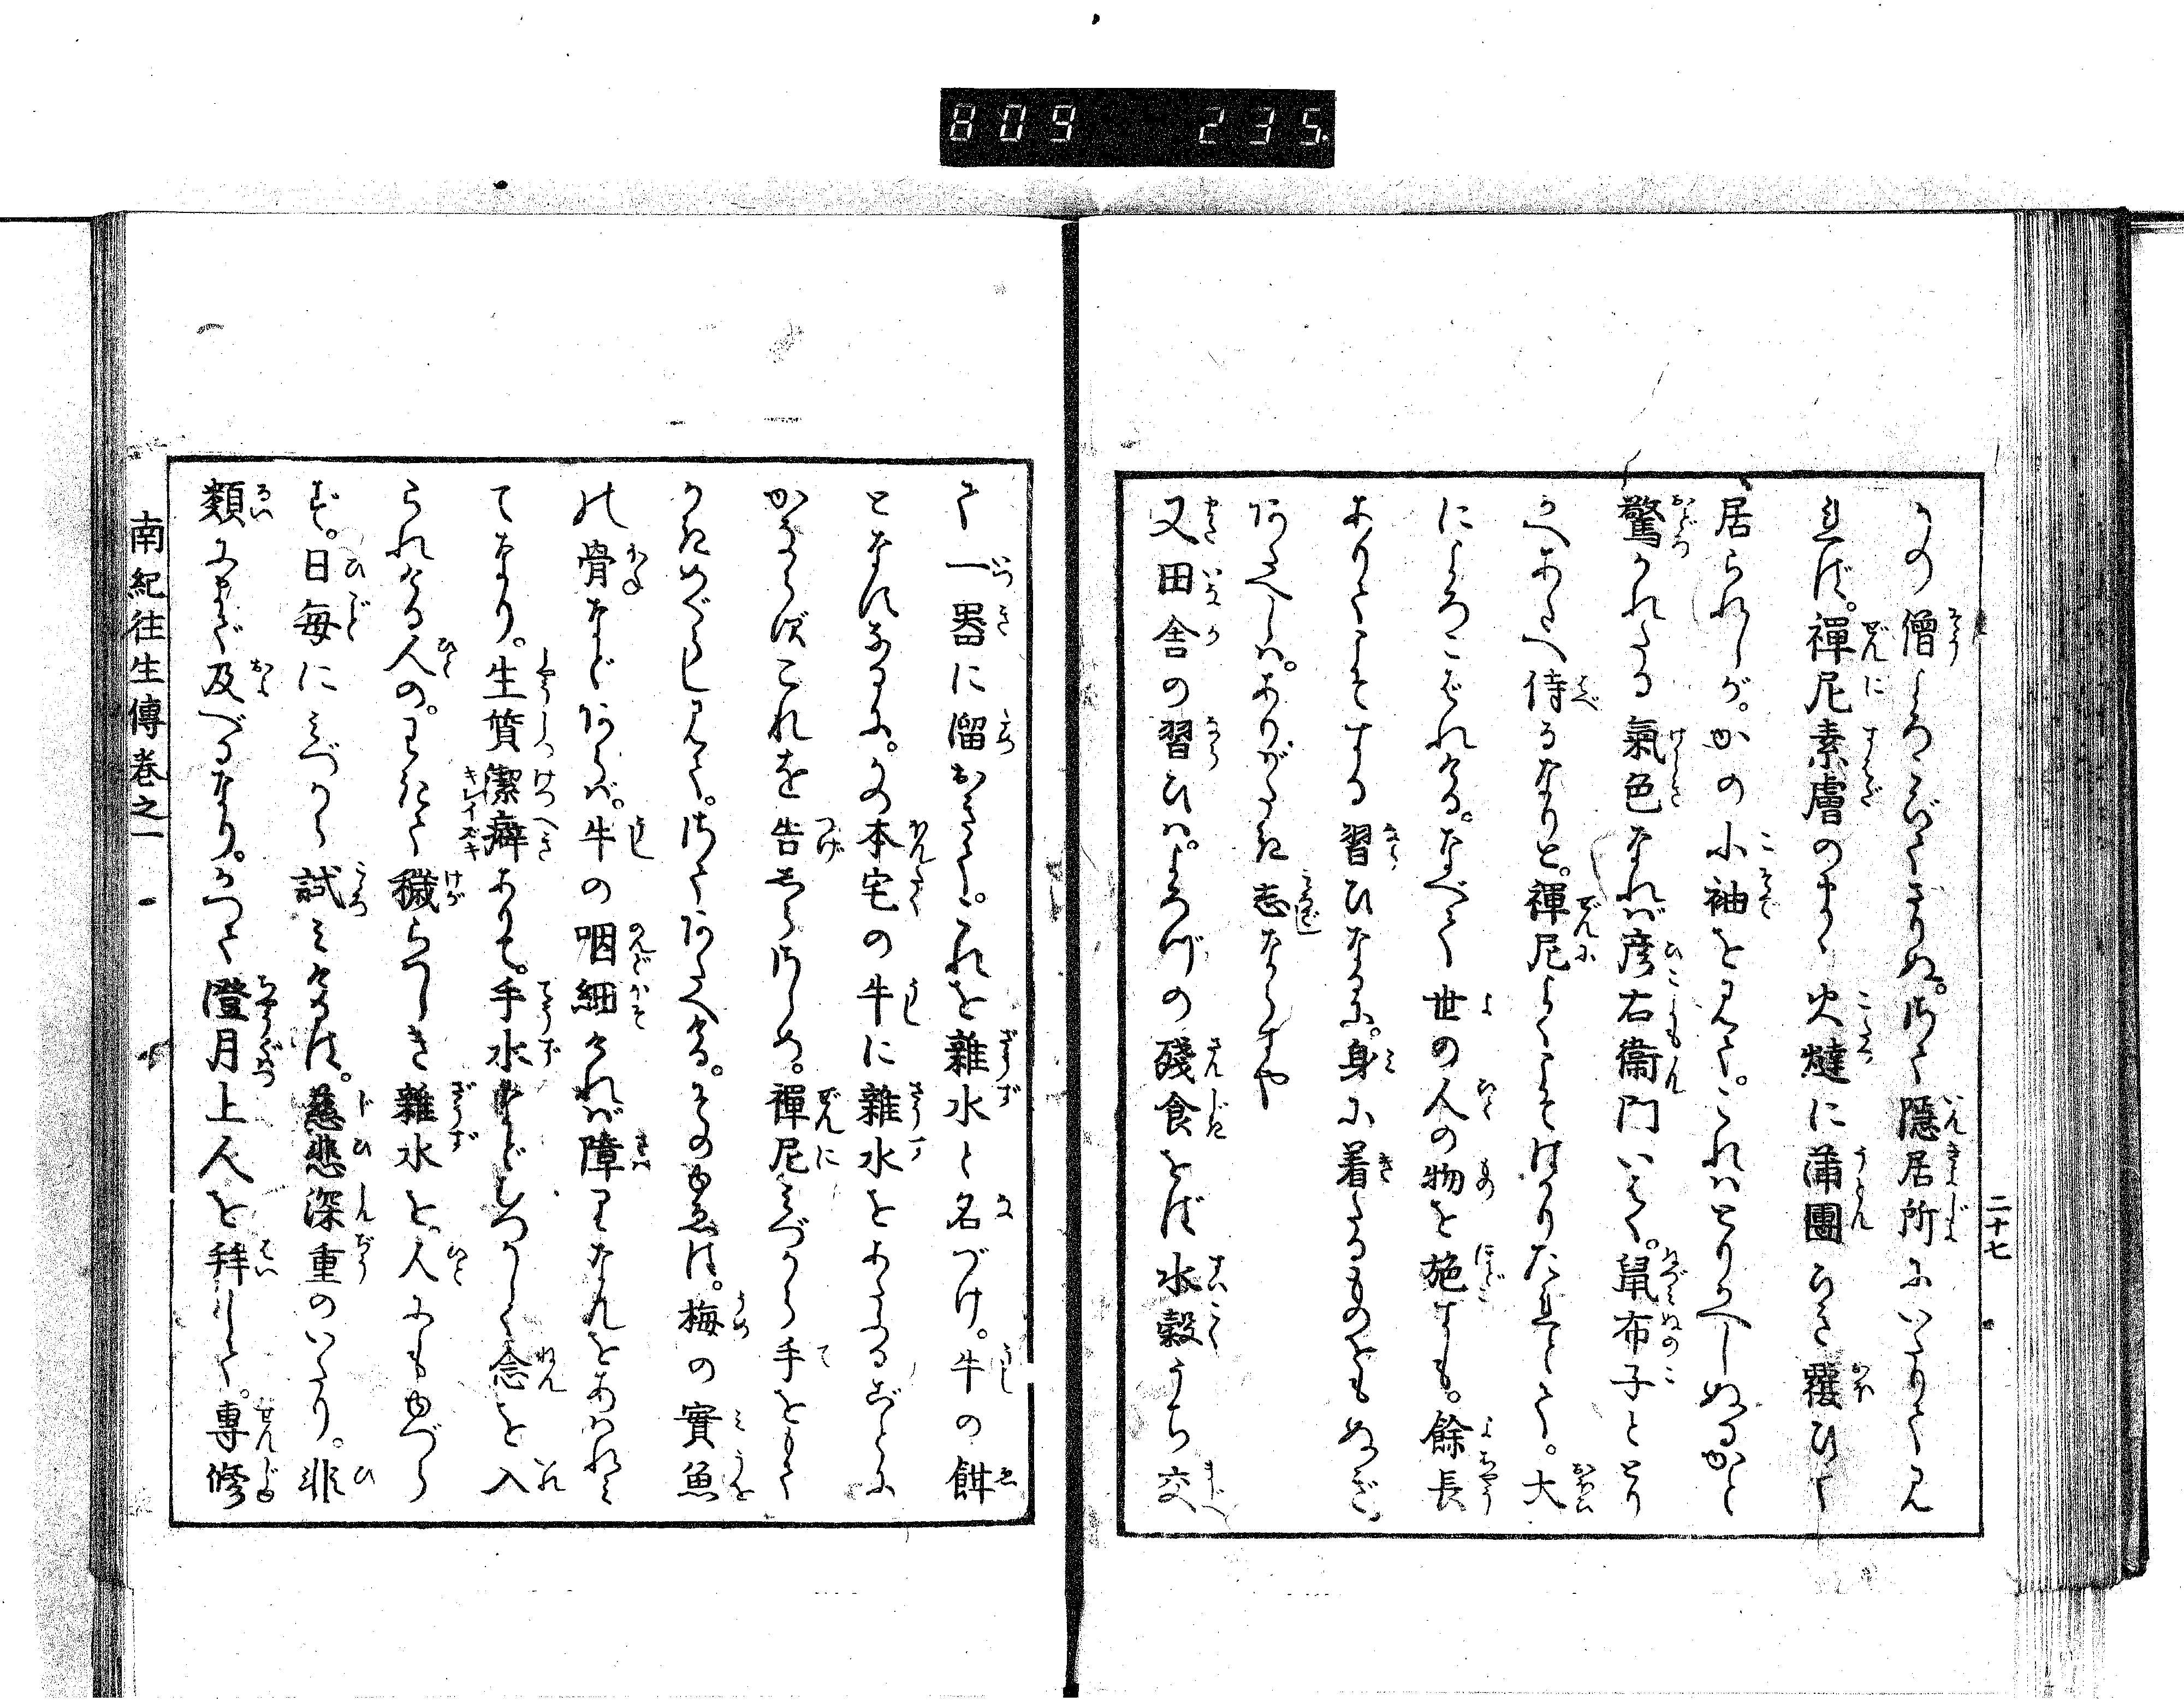 809 235
二十七
かの僧よろこびてさりぬ。さて隱居所にいたりて見
れば。禪尼素膚のまゝ火燵に蒲團うち覆ひて
居られしが。かの小袖を見て。これはとりかへしぬるかと
驚かれたる氣色なれば彦右衞門いはく。鼠布子ととり
かへあたへ侍るなりと。禪尼よくこそはかりたれとて。大
によろこばれける。なべて世の人の物を施すも。餘長
ありてこそする習ひなるに。身に着たるものをもぬぎ
あたへしは。ありがたき志ならずや
又田舍の習ひは。よろづの殘食をば水穀うち交
て一器に溜おきて。これを雜水と名づけ。牛の餌
となすなるに。かの本宅の牛に雜水をあたふるごとに
かならずこれを告しらしめ。禪尼みづから手をもて
かきめぐらし見て。さてあたへける。そのゆゑは。梅の實魚
の骨などあらば。牛の咽細ければ障りなんをあはれみ
てなり。生質潔癖ありて。手水などむつかしく念を入
キレイズキ
られける人の。きたなく穢らはしき雜水を。人にもゆづら
ず。日毎にみづから試みけるは。慈悲深重のいたり。非
類にまで及べるなり。かつて澄月上人を拜して。專修
南紀往生傳卷之一